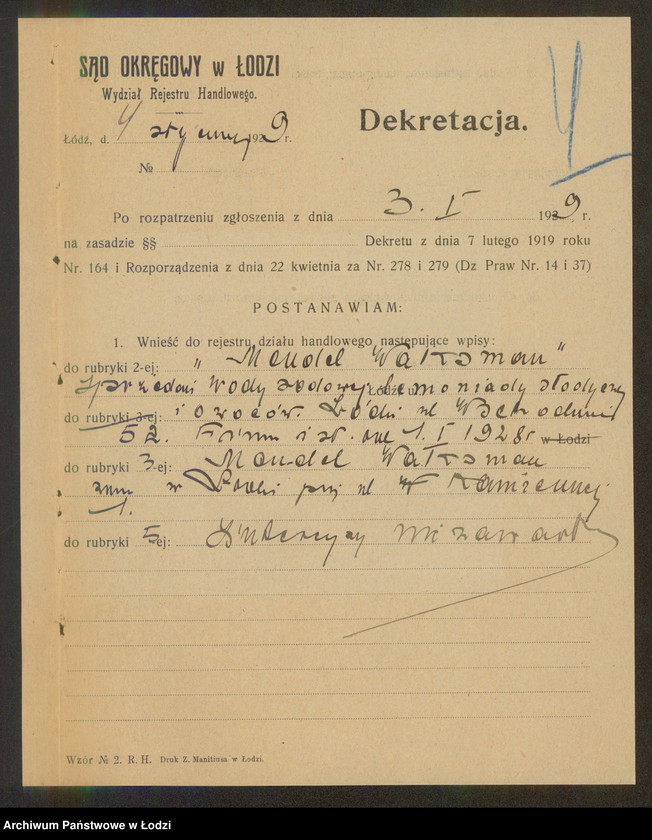 SĄD OKRĘGOWY w ŁODZI
Wydział Rejestru Handlowego.
Łódź, d. 4 stycznia 1929 r.
№
Dekretacja.
Po rozpatrzeniu zgłoszenia z dnia 3. I 1929 r.
na zasadzie §§ Dekretu z dnia 7 lutego 1919 roku
Nr. 164 i Rozporządzenia z dnia 22 kwietnia za Nr. 278 i 279 (Dz Praw Nr. 14 i 37)
POSTANAWIAM:
1. Wnieść do rejestru działu handlowego następujące wpisy:
do rubryki 2-ej: „Mendel Waksman"
Sprzedaż wody sodowej, lemoniady słodyczy
do rubryki 3-ej: i owoców. Łódź ul Wschodnia
52. Firma ist. od 1. I 1928 r w Łodzi
do rubryki 3-ej: Mendel Waksman
zam w Łodzi przy ul Kamiennej
1.
do rubryki 5-ej: Intercyzy nie zawarł
Wzór № 2. R. H. Druk Z. Manitiusa w Łodzi.
Archiwum Państwowe w Łodzi